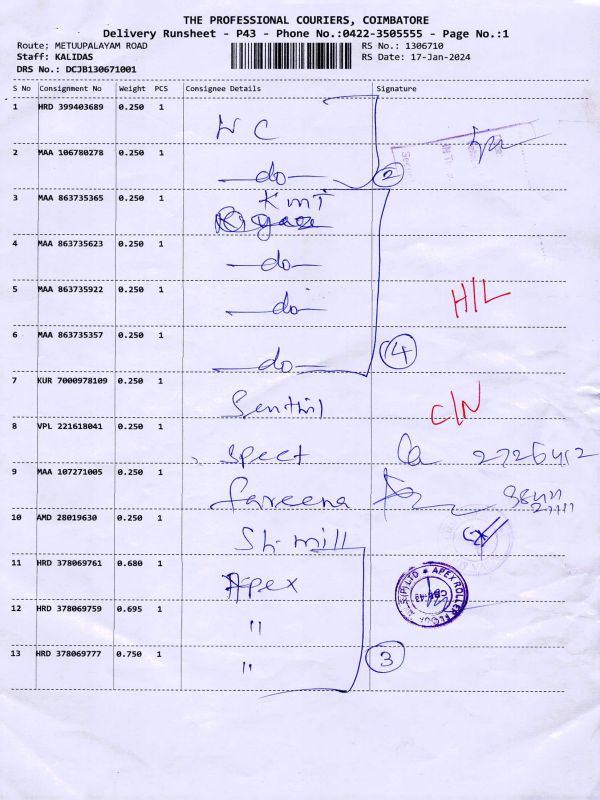 THE PROFESSIONAL COURIERS, COIMBATORE
Delivery Runsheet - P43 - Phone No.:0422-3505555 - Page No.:1
Route; METUUPALAYAM ROAD RS No.: 1306710
Staff: KALIDAS RS Date: 17-Jan-2024
DRS No.: DCJB130671001
S No Consignment No Weight PCS Consignee Details Signature
1 HRD 399403689 0.250 1
N C
2 MAA 106780278 0.250 1
do 2
3 MAA 863735365 0.250 1
KmT
4 MAA 863735623 0.250 1
do
5 MAA 863735922 0.250 1
do H/L
6 MAA 863735357 0.250 1
do 4
7 KUR 7000978109 0.250 1
Senthil C/N
8 VPL 221618041 0.250 1
Spect
9 MAA 107271005 0.250 1
fareena
10 AMD 28019630 0.250 1
Sh-mill
11 HRD 378069761 0.680 1
Apex APEX ROLLER FLOUR
12 HRD 378069759 0.695 1
"
13 HRD 378069777 0.750 1
" 3